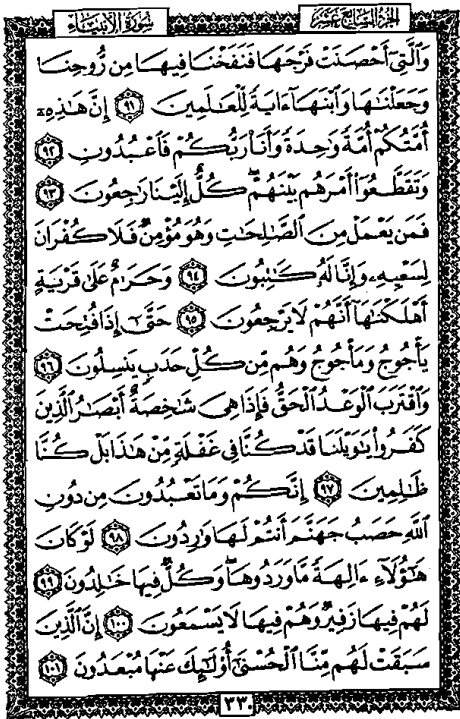 سورة الأنبياء
الجزء السابع عشر
وَٱلَّتِىٓ أَحْصَنَتْ فَرْجَهَا فَنَفَخْنَا فِيهَا مِن رُّوحِنَا
وَجَعَلْنَٰهَا وَٱبْنَهَآ ءَايَةً لِّلْعَٰلَمِينَ ٩١ إِنَّ هَٰذِهِۦٓ
أُمَّتُكُمْ أُمَّةً وَٰحِدَةً وَأَنَا۠ رَبُّكُمْ فَٱعْبُدُونِ ٩٢
وَتَقَطَّعُوٓا۟ أَمْرَهُم بَيْنَهُمْ ۖ كُلٌّ إِلَيْنَا رَٰجِعُونَ ٩٣
فَمَن يَعْمَلْ مِنَ ٱلصَّٰلِحَٰتِ وَهُوَ مُؤْمِنٌ فَلَا كُفْرَانَ
لِسَعْيِهِۦ وَإِنَّا لَهُۥ كَٰتِبُونَ ٩٤ وَحَرَٰمٌ عَلَىٰ قَرْيَةٍ
أَهْلَكْنَٰهَآ أَنَّهُمْ لَا يَرْجِعُونَ ٩٥ حَتَّىٰٓ إِذَا فُتِحَتْ
يَأْجُوجُ وَمَأْجُوجُ وَهُم مِّن كُلِّ حَدَبٍ يَنسِلُونَ ٩٦
وَٱقْتَرَبَ ٱلْوَعْدُ ٱلْحَقُّ فَإِذَا هِىَ شَٰخِصَةٌ أَبْصَٰرُ ٱلَّذِينَ
كَفَرُوا۟ يَٰوَيْلَنَا قَدْ كُنَّا فِى غَفْلَةٍ مِّنْ هَٰذَا بَلْ كُنَّا
ظَٰلِمِينَ ٩٧ إِنَّكُمْ وَمَا تَعْبُدُونَ مِن دُونِ
ٱللَّهِ حَصَبُ جَهَنَّمَ أَنتُمْ لَهَا وَٰرِدُونَ ٩٨ لَوْ كَانَ
هَٰٓؤُلَآءِ ءَالِهَةً مَّا وَرَدُوهَا ۖ وَكُلٌّ فِيهَا خَٰلِدُونَ ٩٩
لَهُمْ فِيهَا زَفِيرٌ وَهُمْ فِيهَا لَا يَسْمَعُونَ ١٠٠ إِنَّ ٱلَّذِينَ
سَبَقَتْ لَهُم مِّنَّا ٱلْحُسْنَىٰٓ أُو۟لَٰٓئِكَ عَنْهَا مُبْعَدُونَ ١٠١
٣٣٠